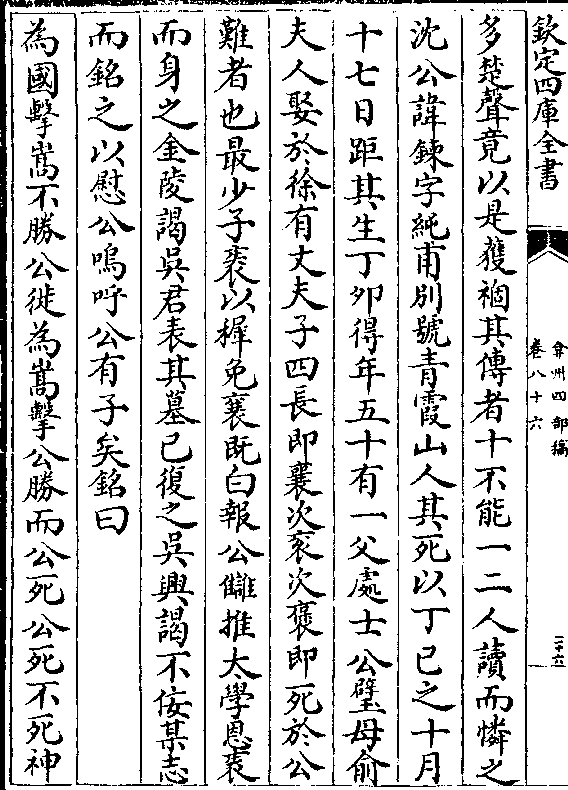 欽定四庫全書
弇州四部稿
卷八十六
二十六
多楚聲竟以是獲禍其傳者十不能一二人讀而憐之
沈公諱鍊字純甫別號青霞山人其死以丁巳之十月
十七日距其生丁夘得年五十有一父處士公璧母俞
夫人娶於徐有丈夫子四長即襄次衮次褒即死於公
難者也最少子袠以穉免襄既白報公讎推太學恩袠
而身之金陵謁吳君表其墓已復之吳興謁不佞某志
而銘之以慰公嗚呼公有子矣銘曰
為國擊嵩不勝公徙為嵩擊公勝而公死公死不死神